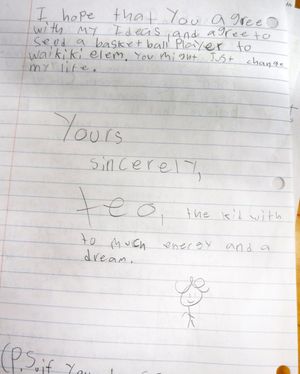 I hope that You agree
with my Ideas, and agree to
seed a basketball Player to
waikiki elem. You might just change
my life.
Yours
sincerely,
teo, the kid with
to much energy and a
dream.
(P.S. if You